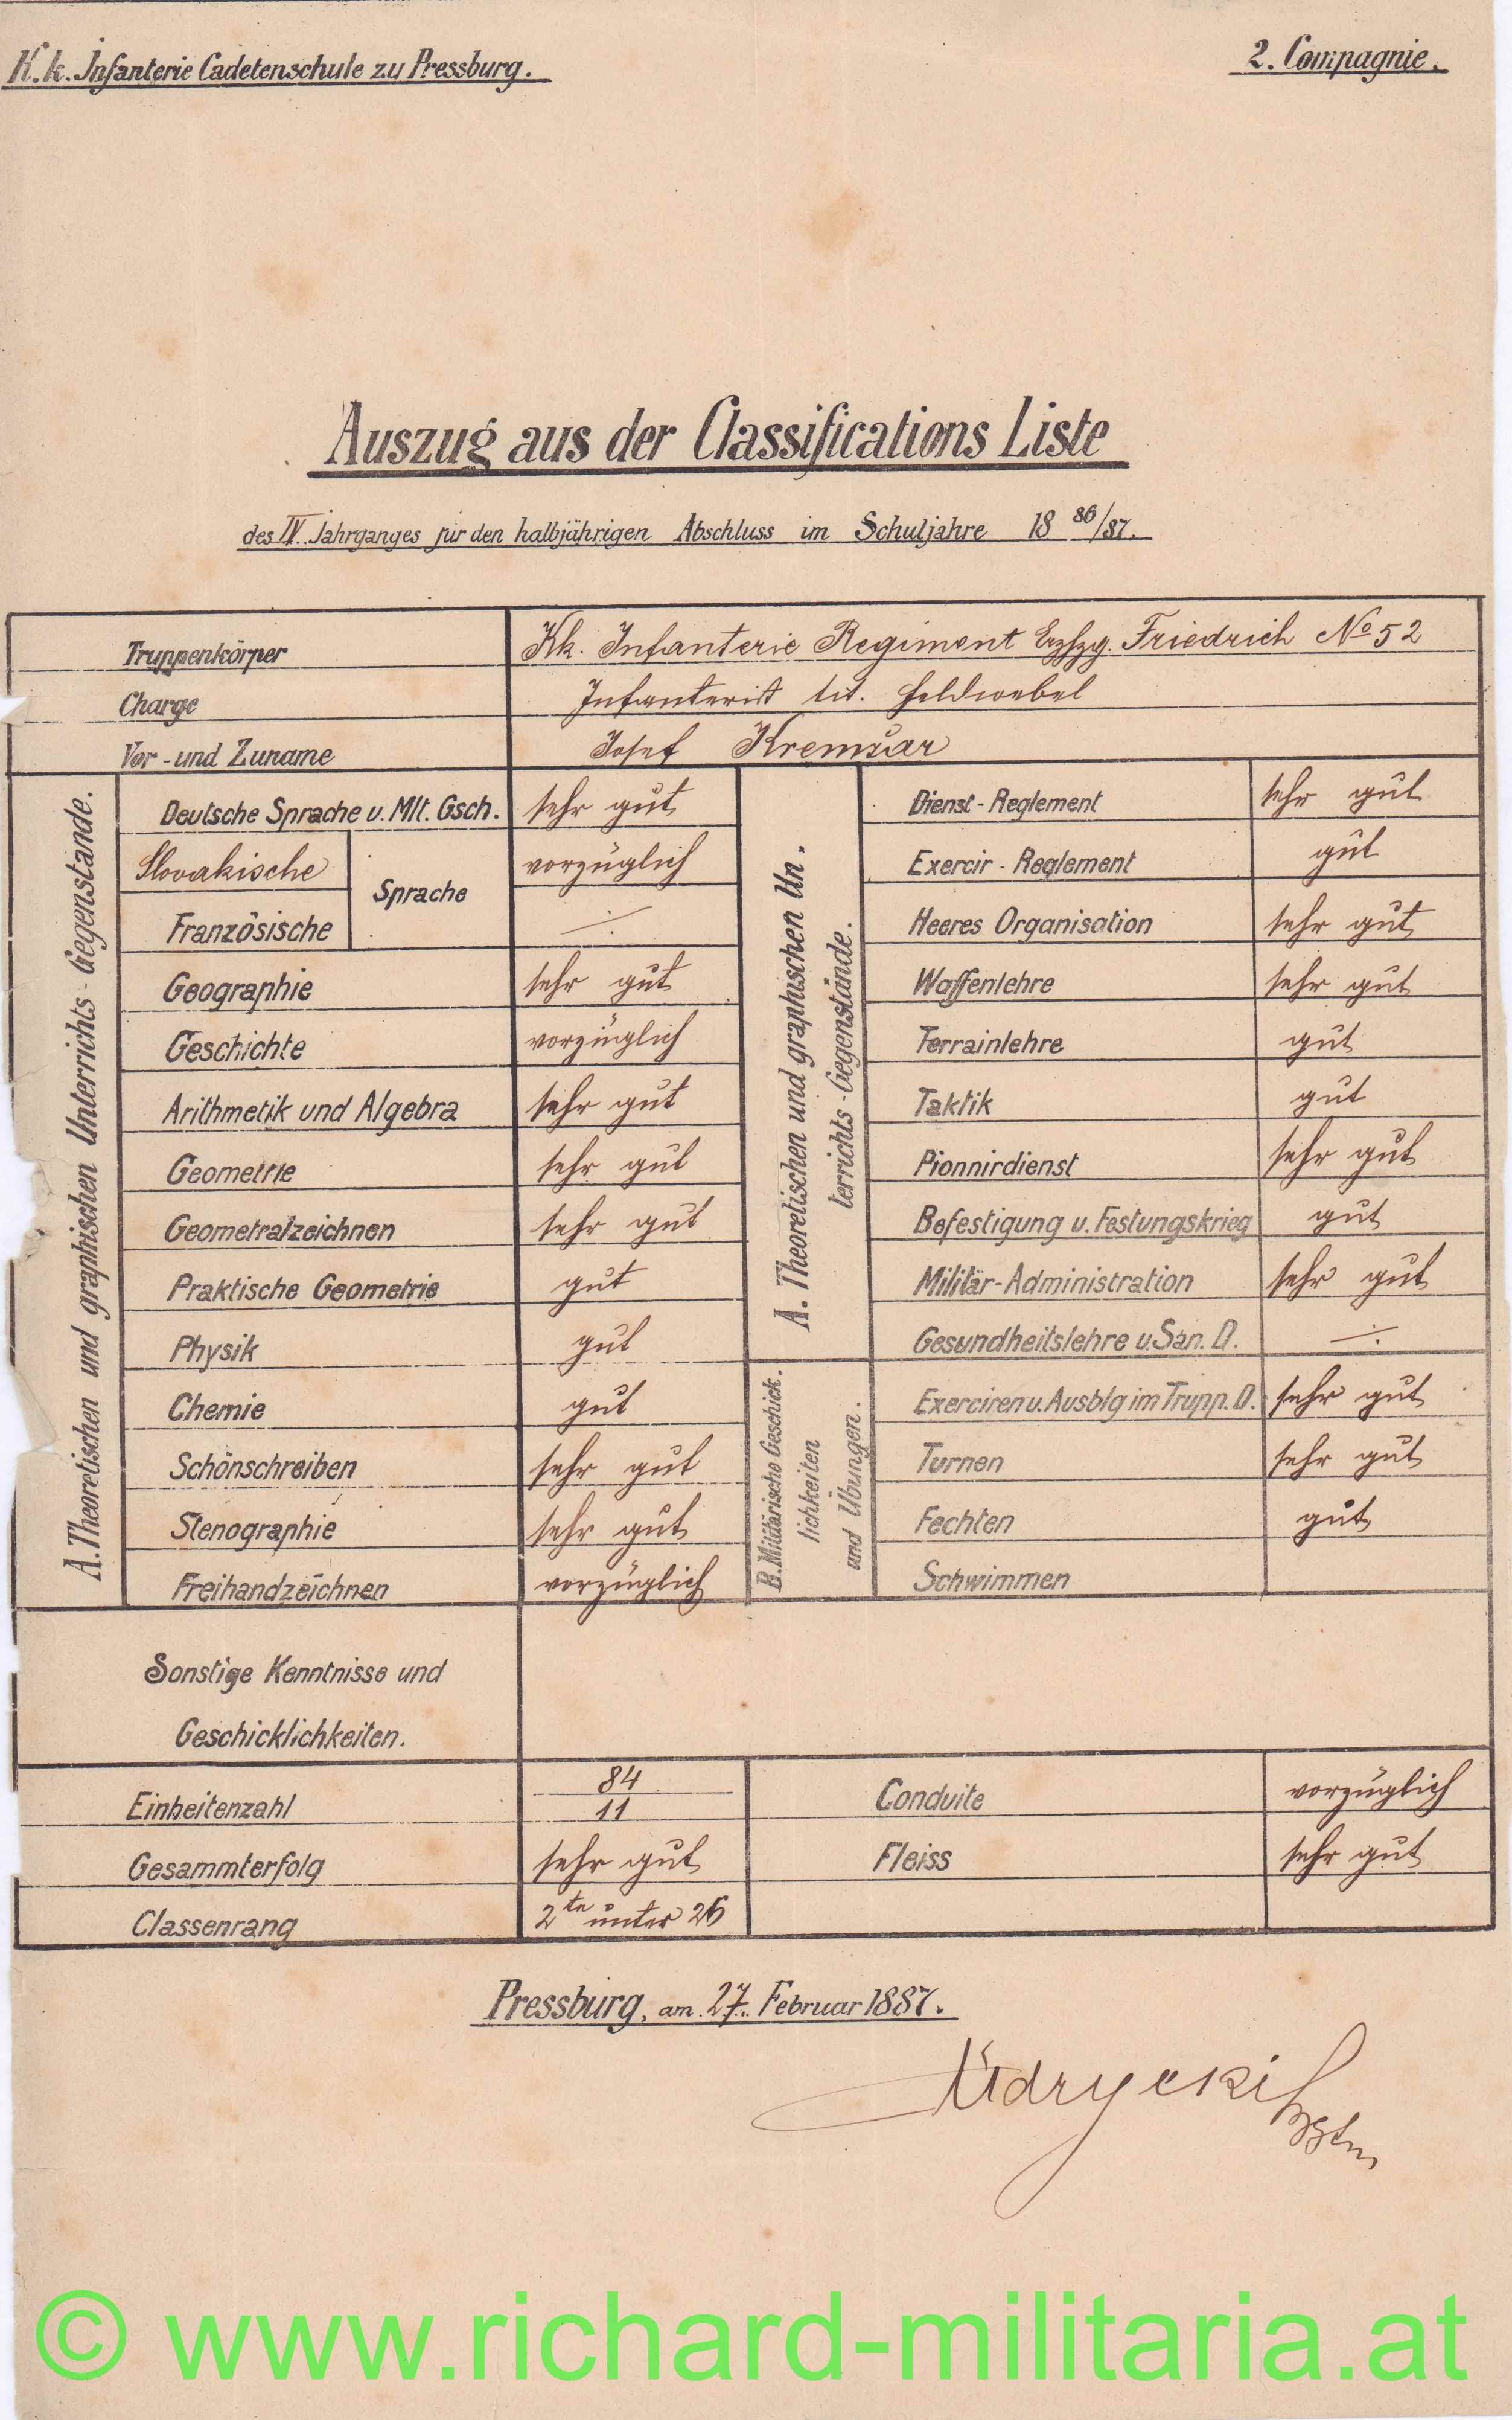 K.k. Infanterie Cadetenschule zu Pressburg.
2. Compagnie.
Auszug aus der Classifications Liste
des IV. Jahrganges für den halbjährigen Abschluss im Schuljahre 18 86/87.
Truppenkörper Kk. Infanterie Regiment Erzhzg. Friedrich No 52
Charge Infanterist tit. Feldwebel
Vor- und Zuname Josef Kremšar
A. Theoretischen und graphischen Unterrichts-Gegenstande.
Deutsche Sprache u. Mlt. Gsch. sehr gut
Slovakische Sprache vorzüglich
Französische ·/·
Geographie sehr gut
Geschichte vorzüglich
Arithmetik und Algebra sehr gut
Geometrie sehr gut
Geometralzeichnen sehr gut
Praktische Geometrie gut
Physik gut
Chemie gut
Schönschreiben sehr gut
Stenographie sehr gut
Freihandzeichnen vorzüglich
A. Theoretischen und graphischen Un.
terrichts-Gegenstände.
Dienst-Reglement sehr gut
Exercir-Reglement gut
Heeres Organisation sehr gut
Waffenlehre sehr gut
Terrainlehre gut
Taktik gut
Pionnirdienst sehr gut
Befestigung u. Festungskrieg gut
Militär-Administration sehr gut
Gesundheitslehre u. San. D. ·/·
B. Militärische Geschick.
lichkeiten
und Übungen.
Exerciren u. Ausblg im Trupp. D. sehr gut
Turnen sehr gut
Fechten gut
Schwimmen
Sonstige Kenntnisse und
Geschicklichkeiten.
Einheitenzahl 84
11
Conduite vorzüglich
Gesammterfolg sehr gut
Fleiss sehr gut
Classenrang 2te unter 26
Pressburg, am 27. Februar 1887.
© www.richard-militaria.at